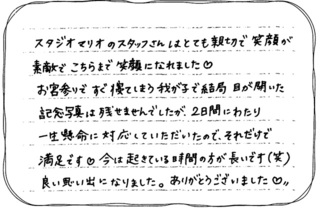 スタジオマリオのスタッフさんはとても親切で笑顔が
素敵でこちらまで笑顔になれました♡
お宮参りですぐ寝てしまう我が子で結局目が開いた
記念写真は残せませんでしたが、2日間にわたり
一生懸命に対応していただいたので、それだけで
満足です♡今は起きている時間の方が長いです(笑)
良い思い出になりました。ありがとうございました♡〃